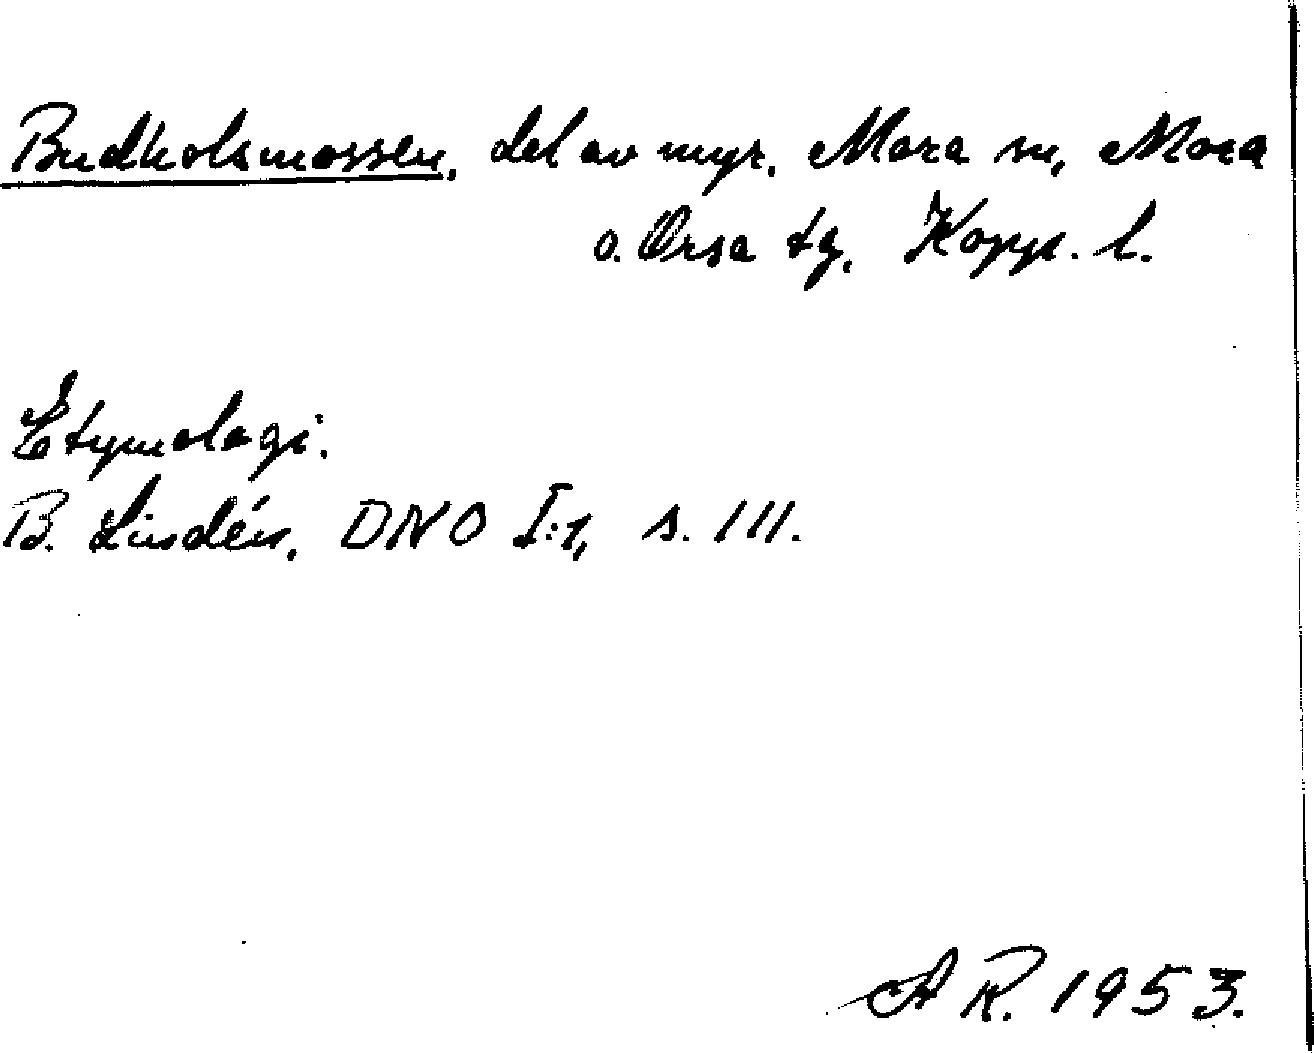 Budholsmossen, del av myr, Mora sn, Mora
o. Orsa tg, Kopp. l.
Etymologi.
B. Lindén, DNO I:1, s. 111.
A R. 1953.